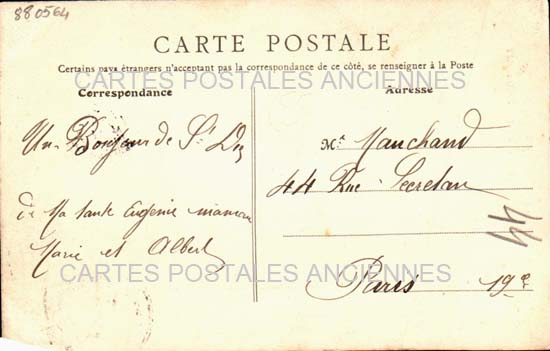 880564
CARTE POSTALE
Certains pays étrangers n'acceptent pas la correspondance de ce côté, se renseigner à la Poste
CARTES POSTALES ANCIENNES
Correspondance
Adresse
Un Bonjour de St
de Ma tante Eugenie maman
Marie et Albert
Mr Marchand
44 Rue Secretan
44
CARTES POSTALES ANCIENNES
Paris 19e